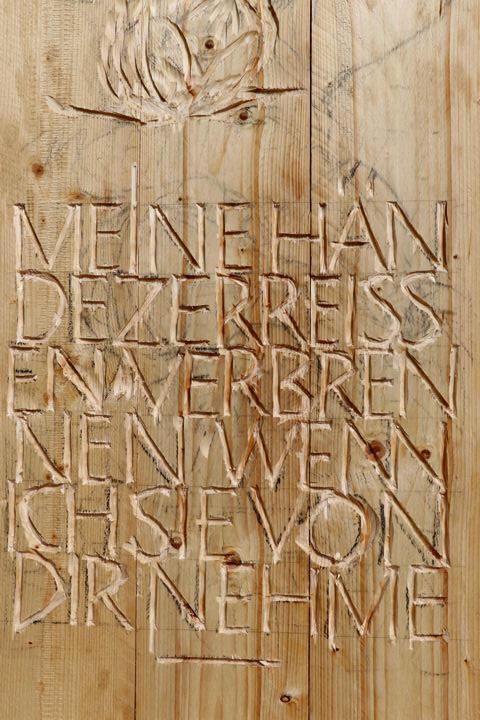 MEINE HÄN
DE ZERREISS
EN VERBREN
NEN WENN
ICH SIE VON
DIR NEHME